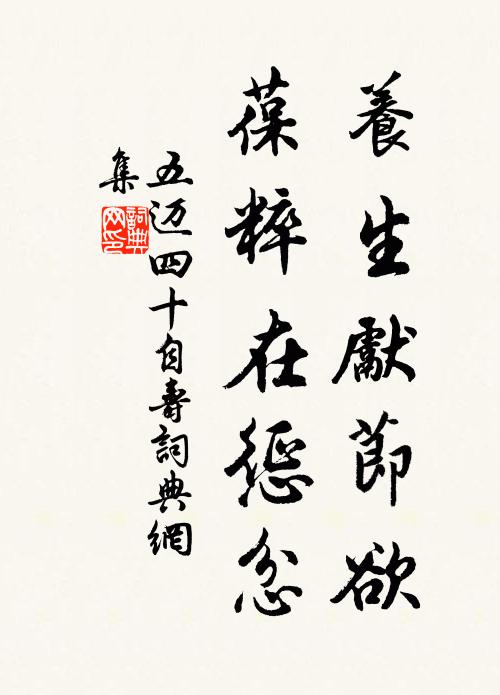 養生獻節欲
葆粹在惩忿
五迈四十自壽詞典網
集
詞典
网印